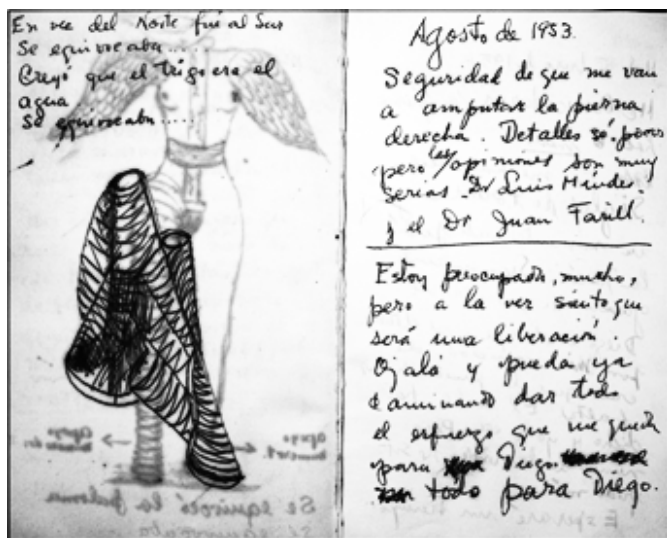 En vez del Norte fué al Sur
Se equivocaba......
Creyó que el trigo era el
agua
Se equivocaba.....
Agosto de 1953.
Seguridad de que me van
a amputar la pierna
derecha. Detalles sé pocos
pero las opiniones son muy
serias. Dr Luis Méndez.
y el Dr Juan Farill.
Estoy preocupada, mucho,
pero a la vez siento que
será una liberación.
Ojalá y pueda ya
caminando dar todo
el esfuerzo que me queda
para Diego
todo para Diego.
apoyo
apoyo
Se equivocó la paloma
se equivocaba